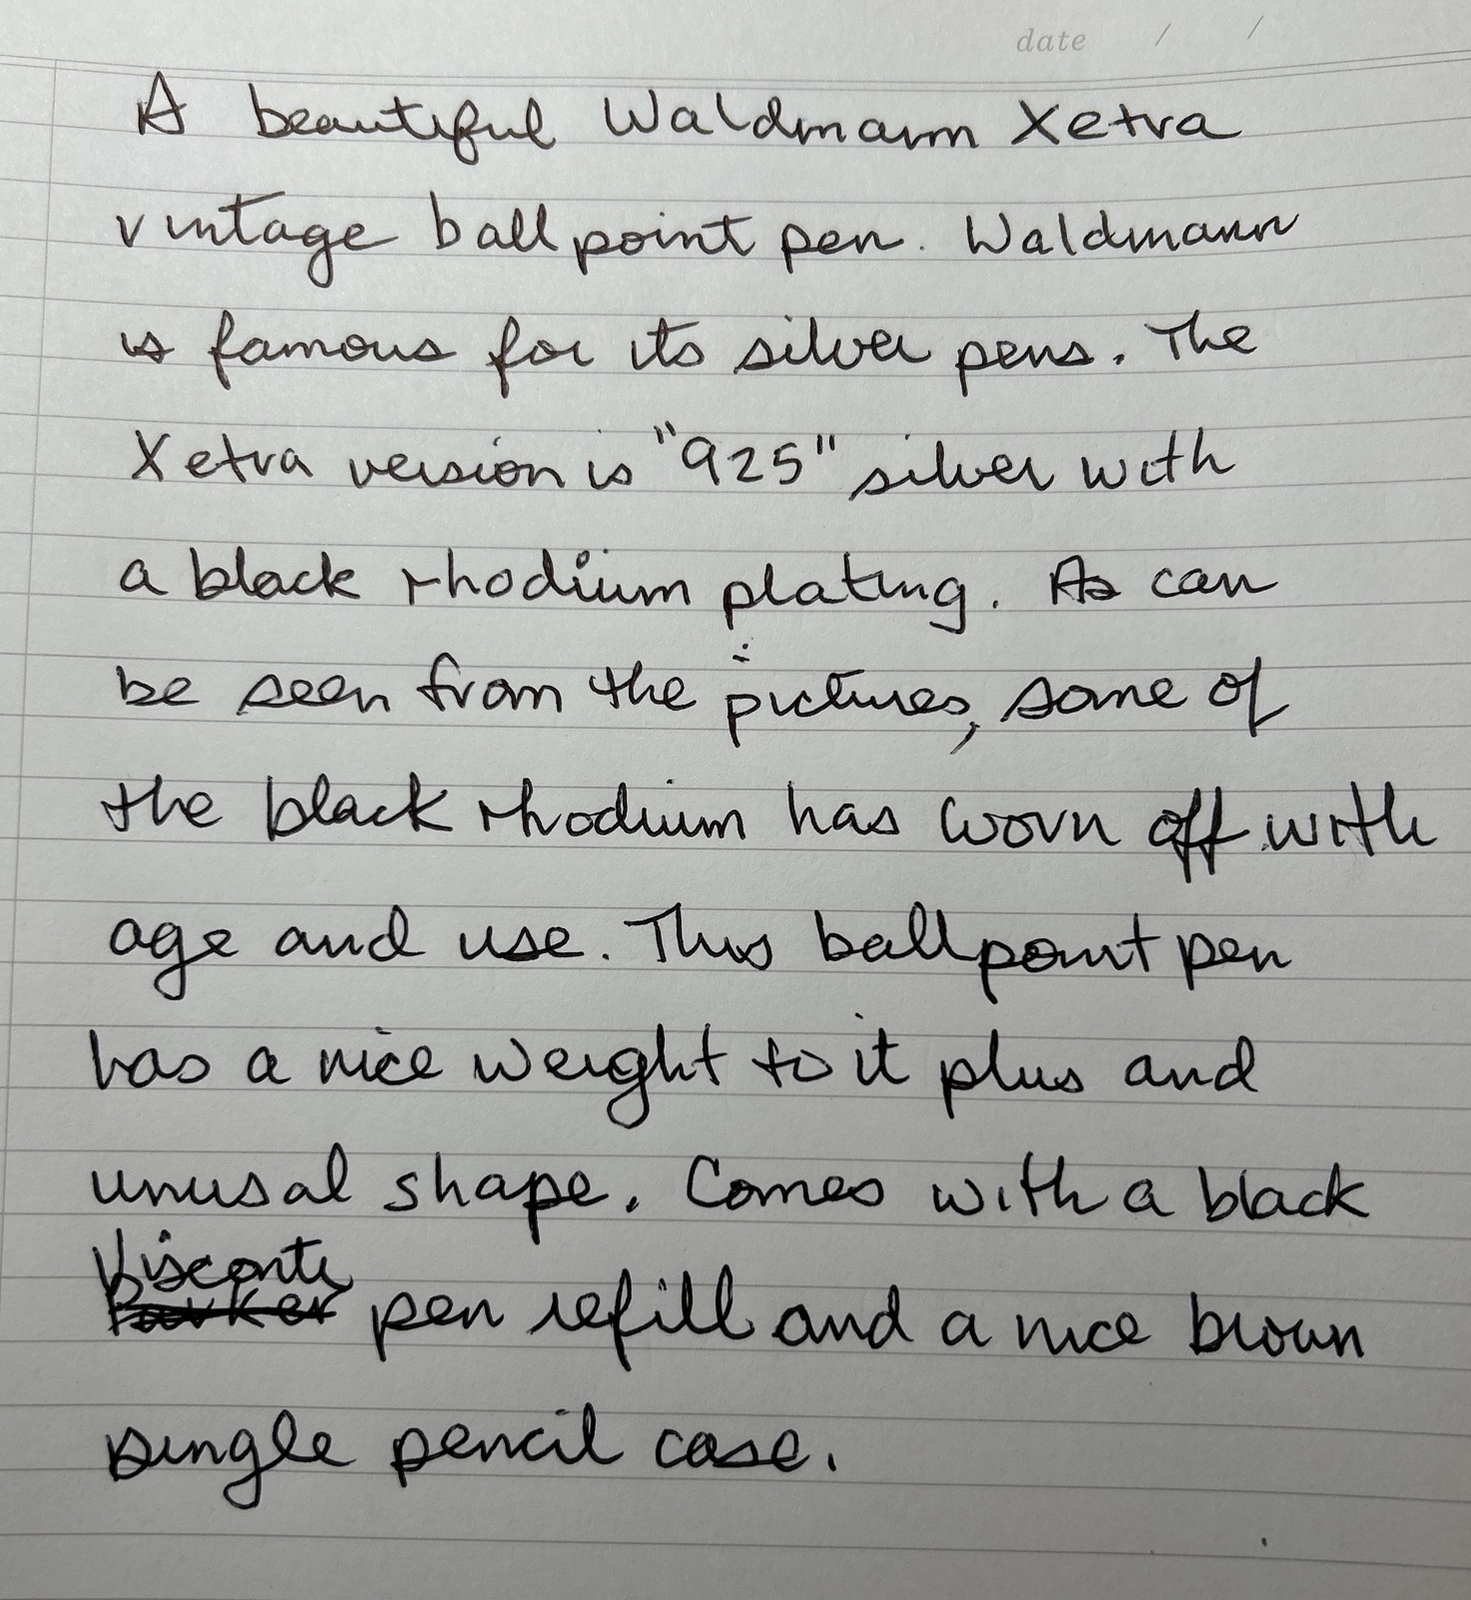 date / /
A beautiful Waldmann Xetra
vintage ballpoint pen. Waldmann
is famous for its silver pens. The
Xetra version is "925" silver with
a black rhodium plating. As can
be seen from the pictures, some of
the black rhodium has worn off with
age and use. This ballpoint pen
has a nice weight to it plus and
unusal shape. Comes with a black
Visconti
Parker pen refill and a nice brown
single pencil case.